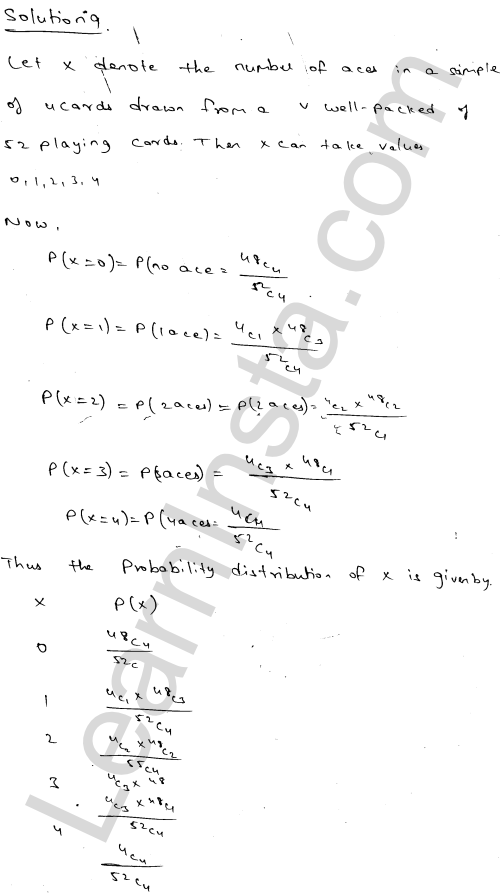 Solution 9.
Let x denote the number of aces in a simple
of 4 cards drawn from a v well-packed of
52 playing cards. Then x can take values
0, 1, 2, 3, 4
Now,
P(x=0) = P(no ace = 48C4 / 52C4 .
P(x=1) = P(1 ace) = 4C1 x 48C3 / 52C4
P(x=2) = P(2 aces) = P(2 aces) = 4C2 x 48C2 / 52C4
P(x=3) = P(3aces) = 4C3 x 48C1 / 52C4
P(x=4) = P(4 aces = 4C4 / 52C4
Thus the Probability distribution of x is givenby.
x P(x)
0 48C4 / 52C
1 4C1 x 48C3 / 52C4
2 4C2 x 48C2 / 55C4
3 4C3 x 48
4C3 x 48C1 / 52C4
4 4C4 / 52C4
LearnInsta.com